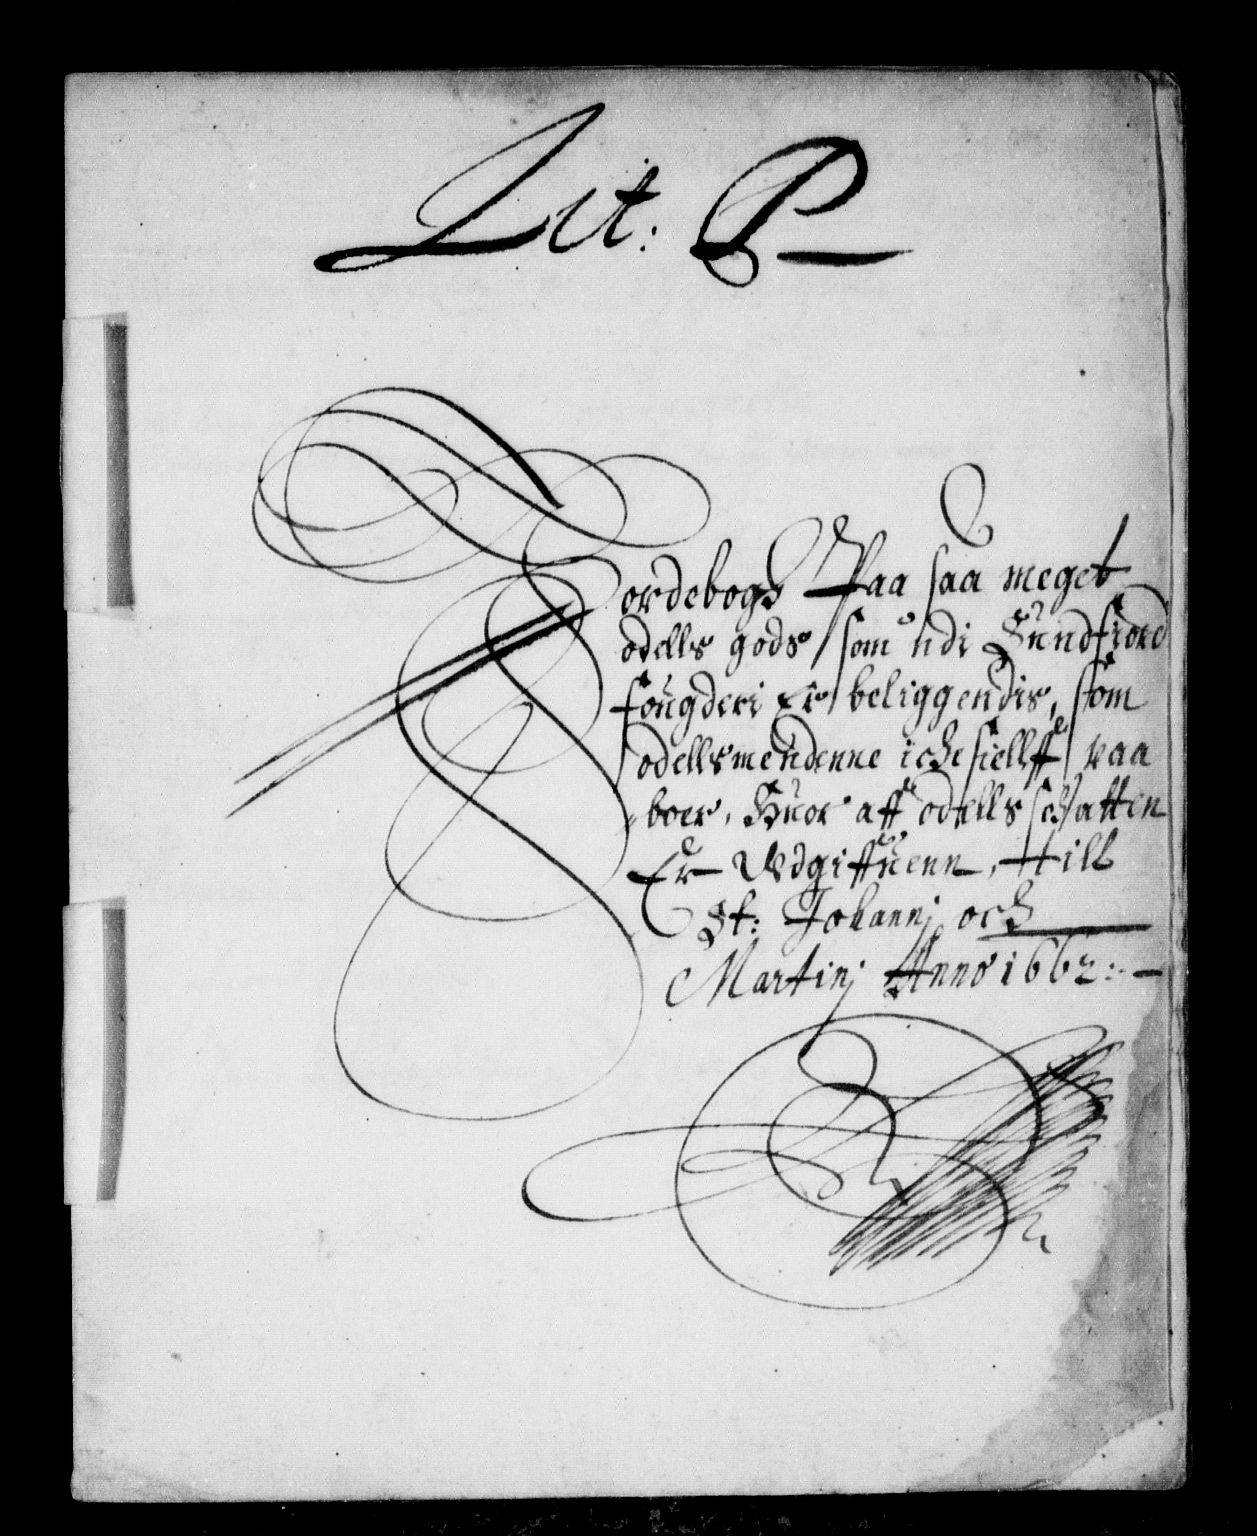 Lit: P
Jordebogh Paa saa meget
odells gods som udi Sundfiord
fougderi Er beliggendis, som
odellsmendenne iche sielff paa
boer, Huor aff odells schatten
Er Udgiffuenn, till
St: Johannj och
Martinj Anno 1662: